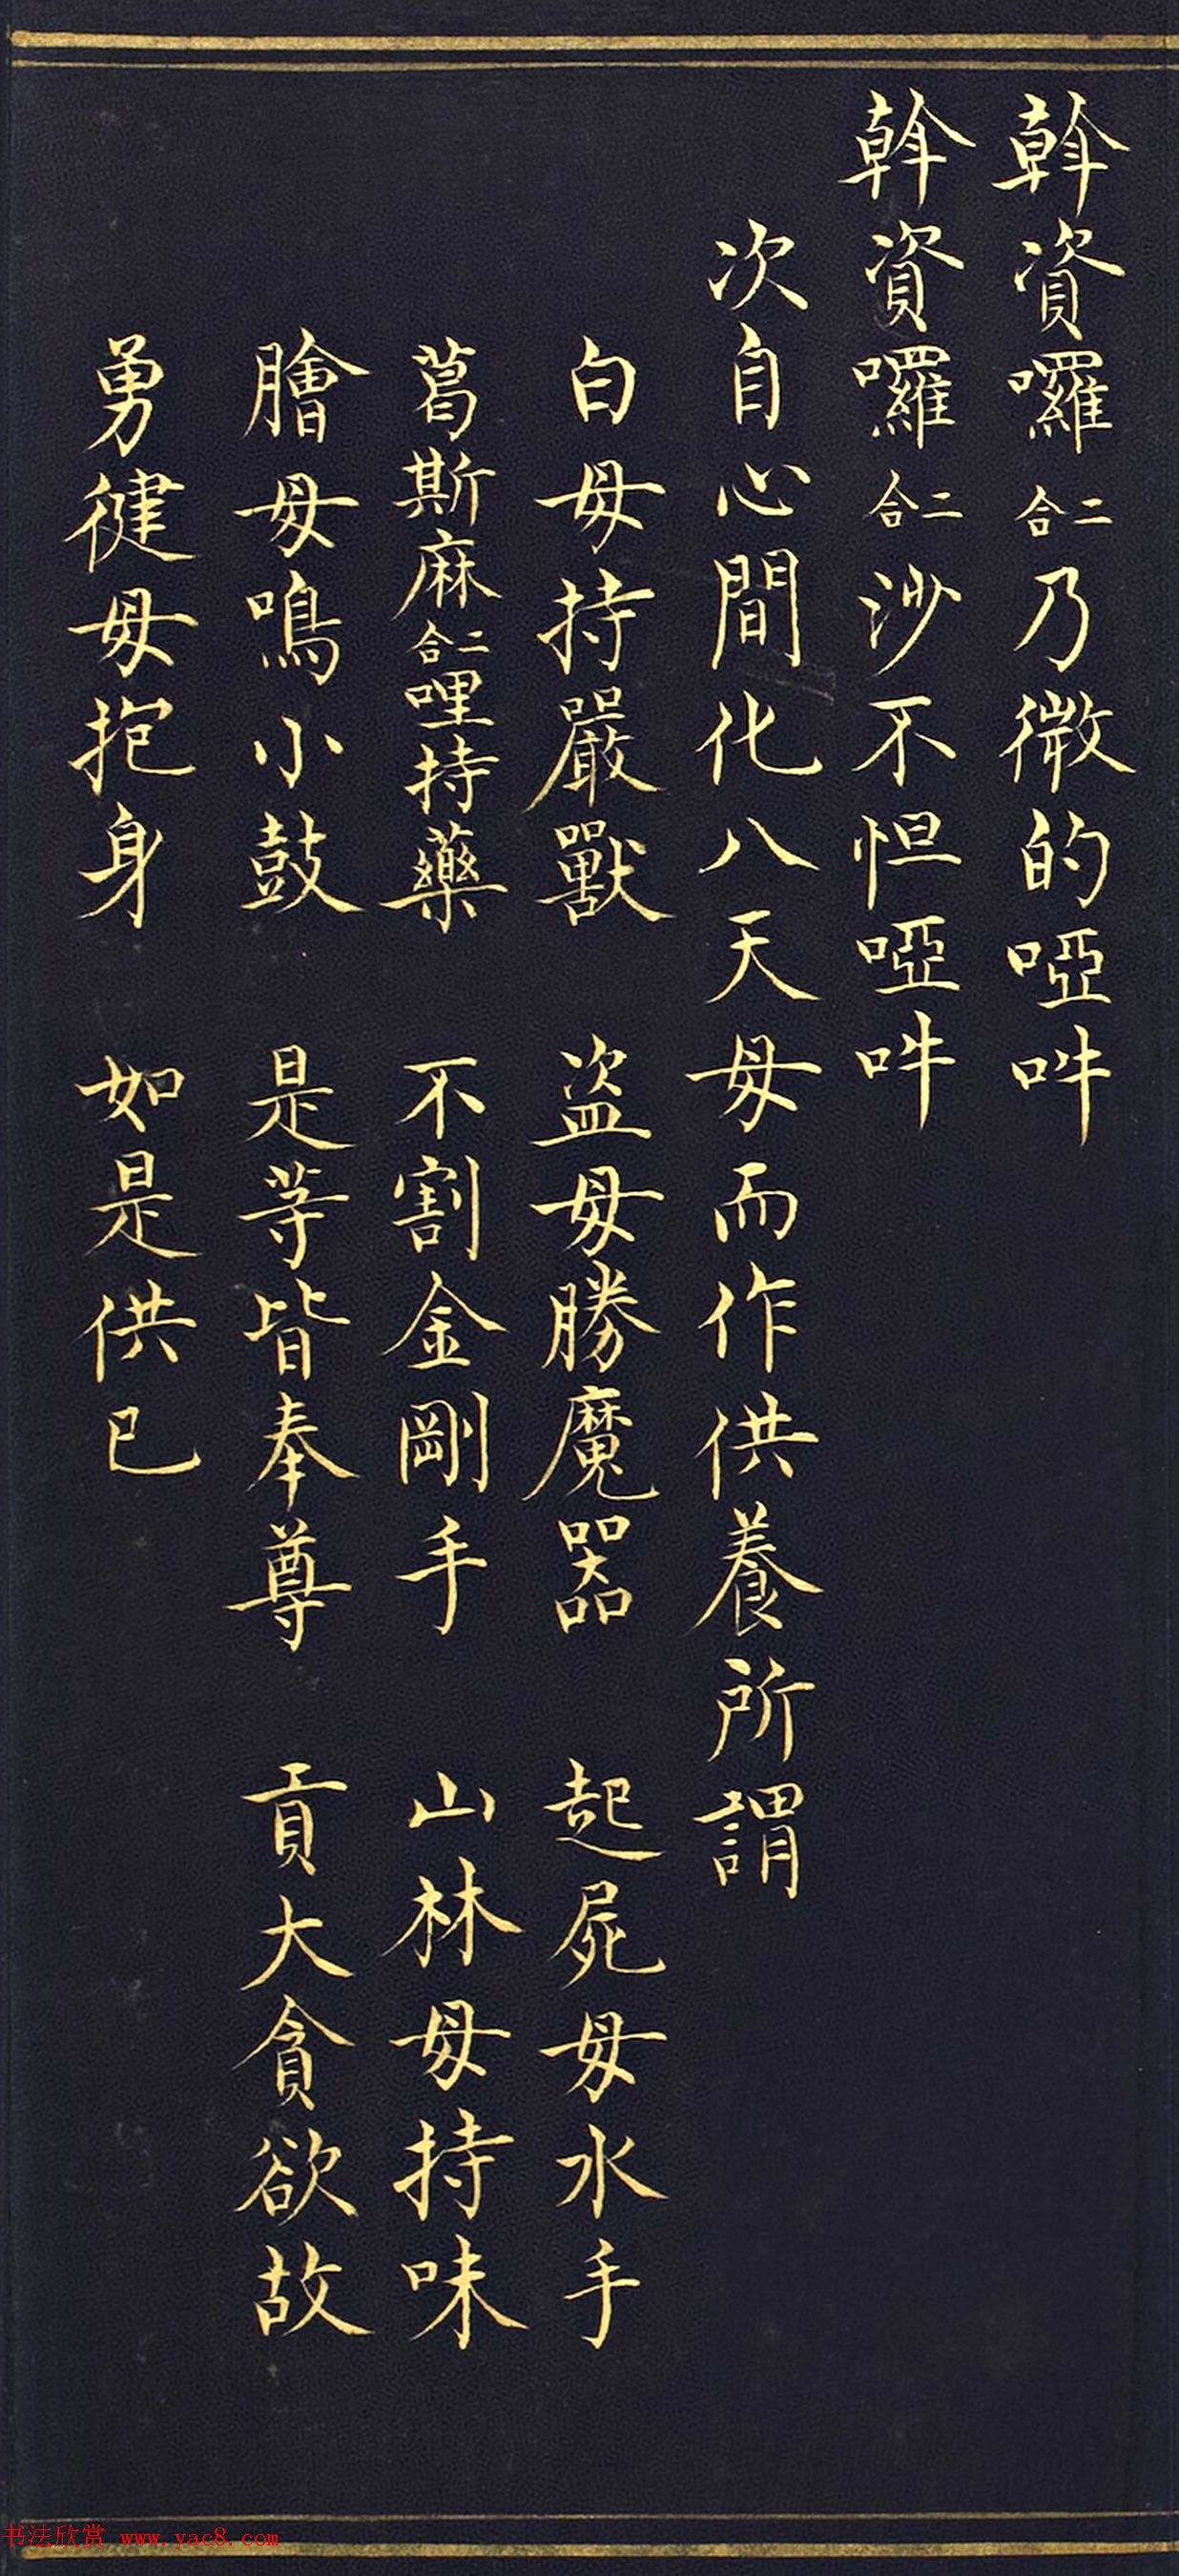 斡資囉二合乃微的啞吽
斡資囉二合沙不怛啞吽
次自心間化八天母而作供養所謂
白母持嚴獸 盗母勝魔器 起屍母水手
葛斯麻二合哩持藥 不割金剛手 山林母持味
膾母鳴小鼓 是等皆奉尊 貢大貪欲故
勇健母抱身 如是供已
书法欣赏 www.yac8.com